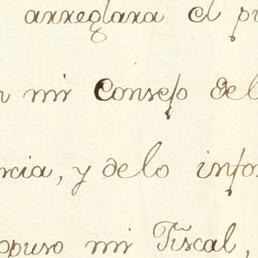 arreglara el pu
n mi Consejo del
rcia, y de lo infor
opuso mi Fiscal,